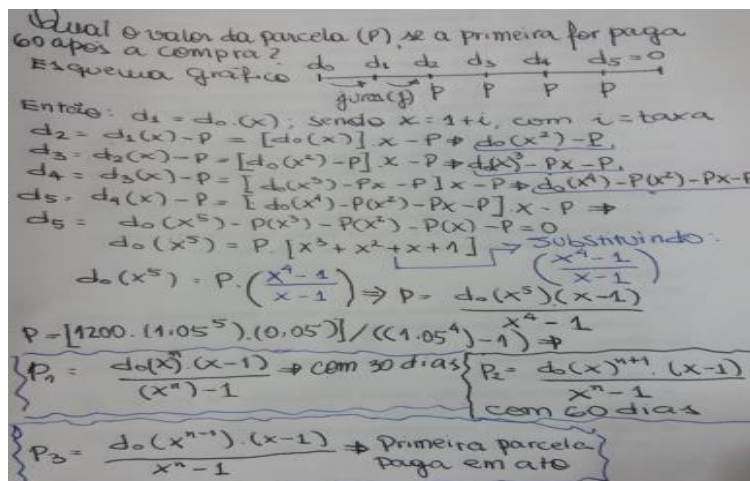 Qual o valor da parcela (P), se a primeira for paga
60 após a compra?
Esquema gráfico d₀ d₁ d₂ d₃ d₄ d₅ = 0
juros (J) P P P P
Então: d₁ = d₀.(x); sendo x = 1+i, com i = taxa
d₂ = d₁(x) - P = [d₀(x)].x - P ⇒ d₀(x²) - P.
d₃ = d₂(x) - P = [d₀(x²) - P].x - P ⇒ d₀(x)³ - Px - P.
d₄ = d₃(x) - P = [d₀(x³) - Px - P]x - P ⇒ d₀(x⁴) - P(x²) - Px - P
d₅ = d₄(x) - P = [d₀(x⁴) - P(x²) - Px - P].x - P ⇒
d₅ = d₀(x⁵) - P(x³) - P(x²) - P(x) - P = 0
d₀(x⁵) = P.[x³ + x² + x + 1] → Substituindo:
(x⁴ - 1 / x - 1)
d₀(x⁵) = P.(x⁴ - 1 / x - 1) ⇒ P = d₀(x⁵)(x - 1) / x⁴ - 1
P = [1200.(1.05⁵).(0,05)] / ((1.05⁴) - 1) ⇒
P₁ = d₀(x)ⁿ.(x - 1) / (xⁿ) - 1 ⇒ com 30 dias
P₂ = d₀(x)ⁿ⁺¹.(x - 1) / xⁿ - 1
com 60 dias
P₃ = d₀(xⁿ⁻¹).(x - 1) / xⁿ - 1 ⇒ Primeira parcela
paga em ato